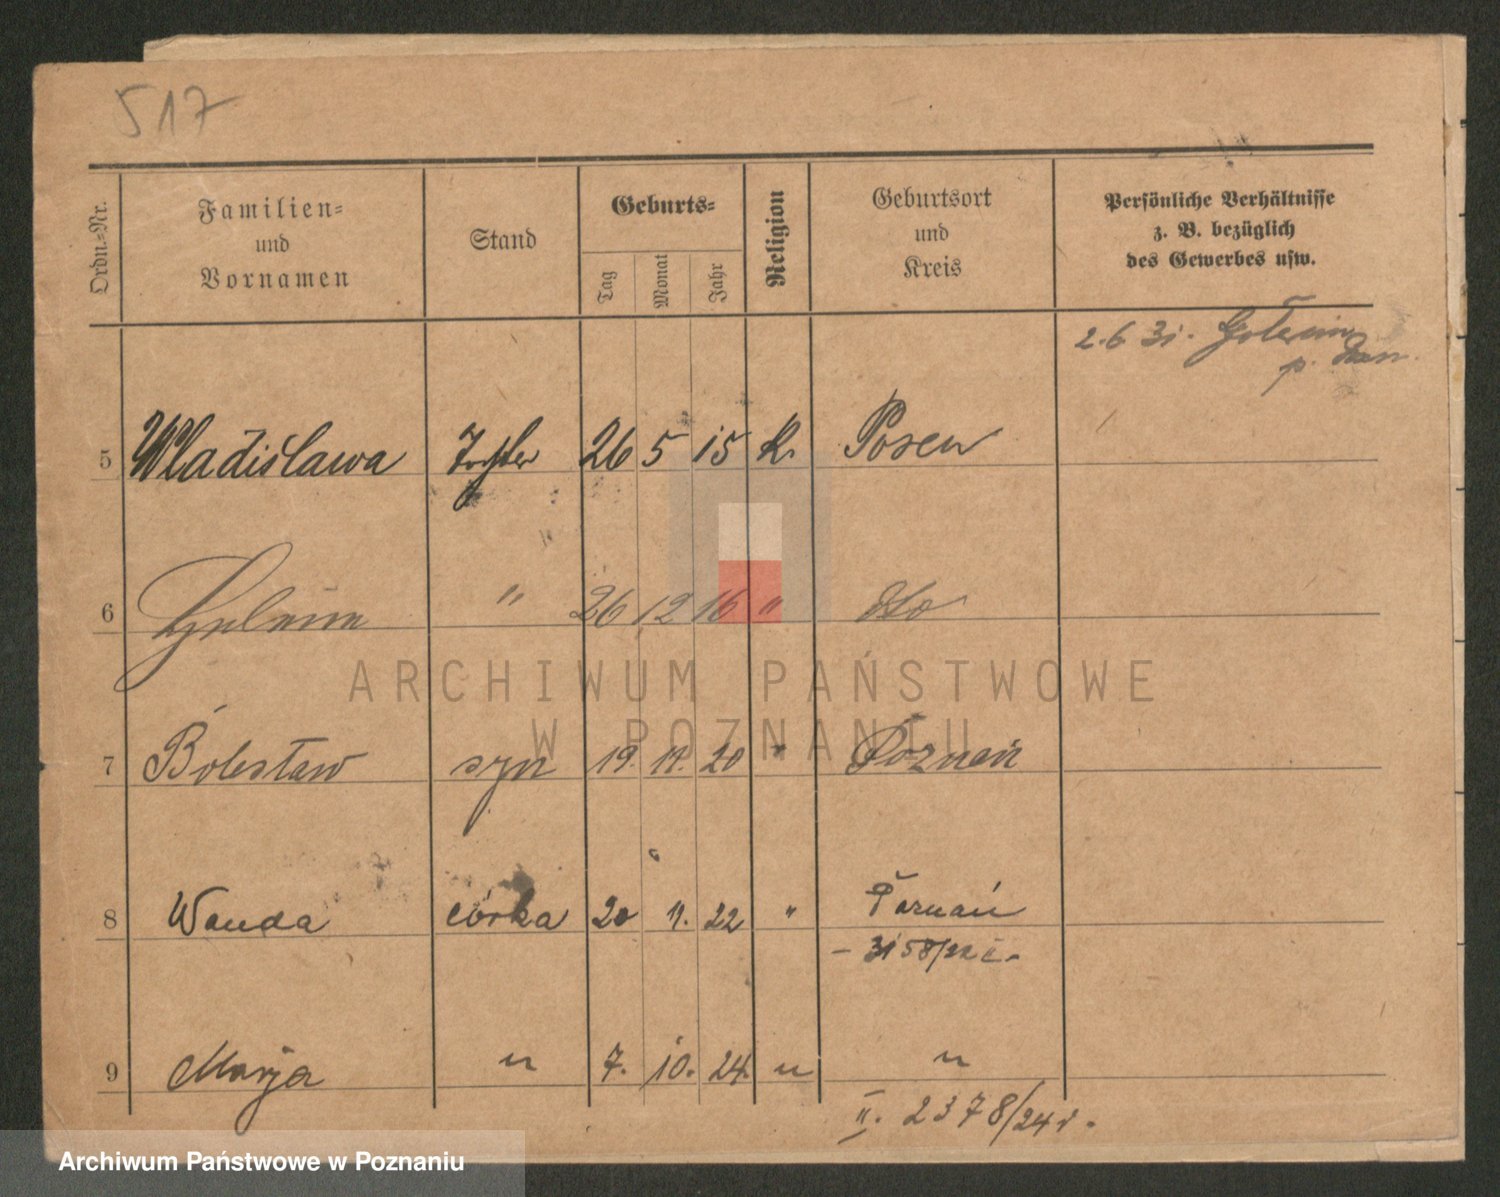 517
Ordn.=Nr.
Familien=
und
Vornamen
Stand
Geburts=
Tag
Monat
Jahr
Religion
Geburtsort
und
Kreis
Persönliche Verhältnisse
z. B. bezüglich
des Gewerbes usw.
2.6 31.
5 Wladislawa Tochter 26 5 15 K. Posen
6 " 26 12 16 " dto
7 Bolesław syn 19. 11. 20 " Poznań
8 Wanda córka 20 11. 22 " Poznań
- 3158/22 I.
9 Marja " 7. 10. 24. " "
II. 2378/24 r.
ARCHIWUM PAŃSTWOWE
W POZNANIU
Archiwum Państwowe w Poznaniu